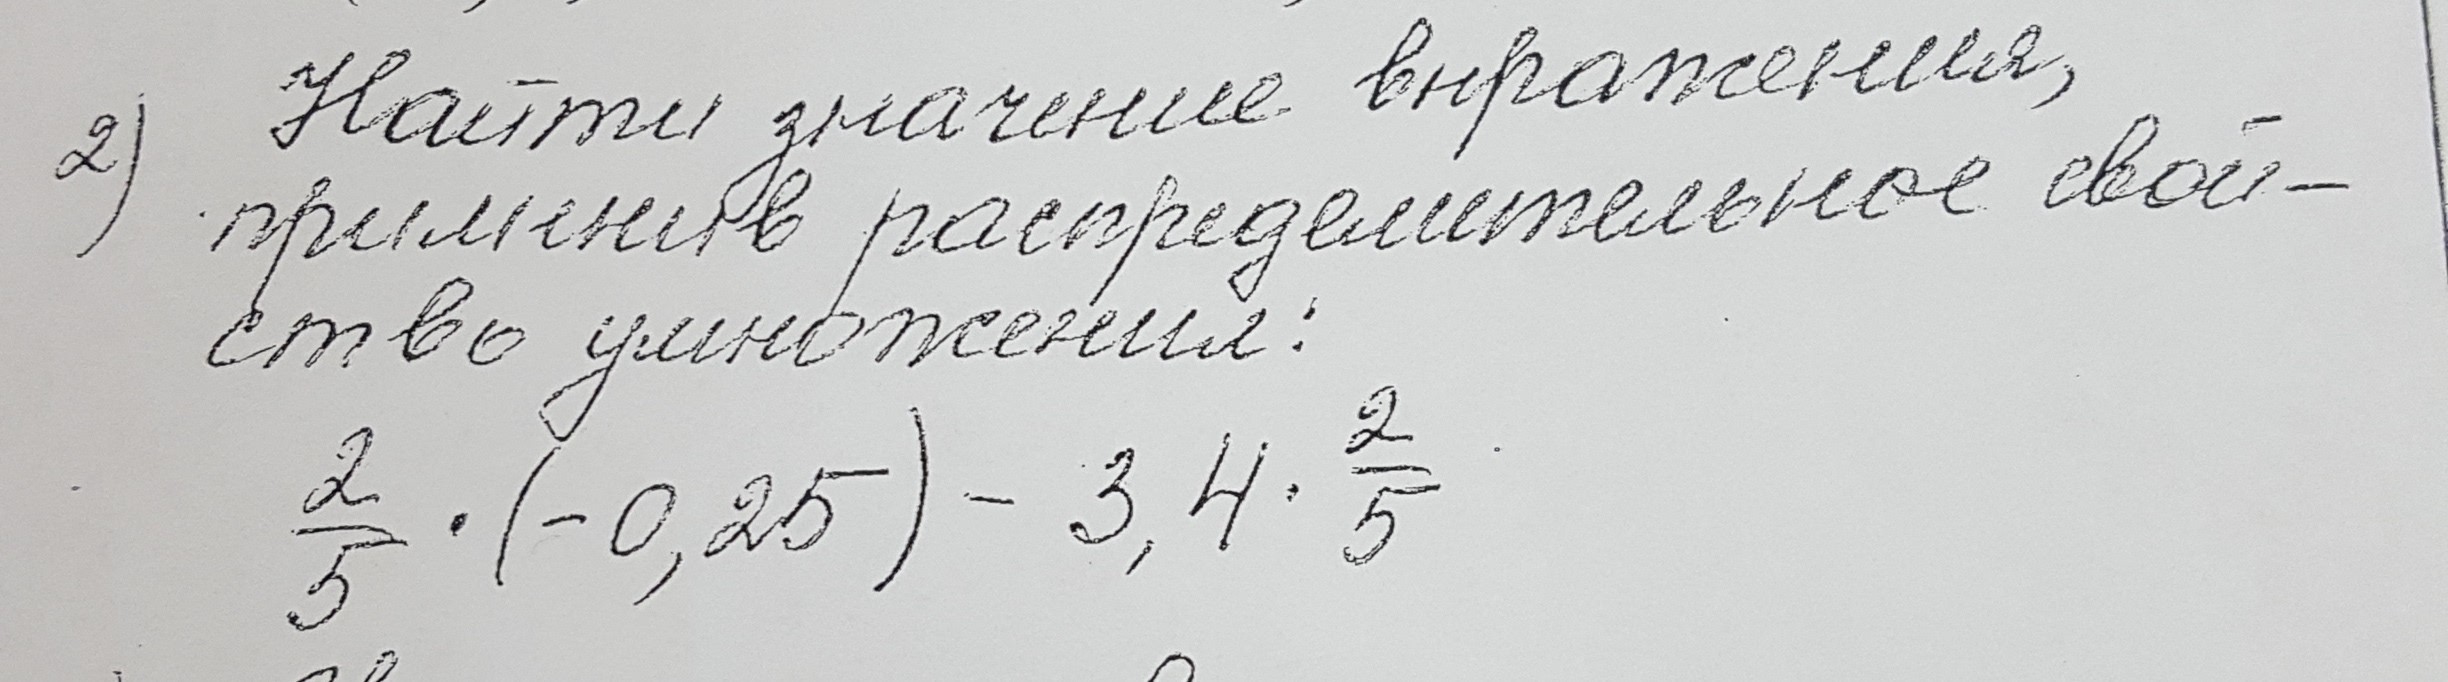 2) Найти значение выражения,
применив распределительное свой-
ство умножения:
2/5 · (-0,25) - 3,4 · 2/5